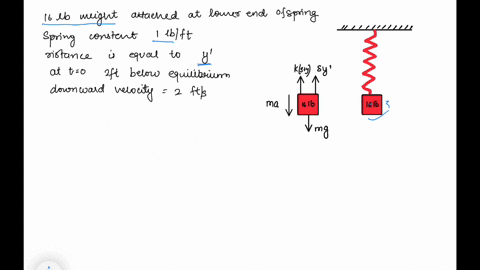 16 lb weight attached at lower end of spring
Spring constant 1 lb/ft
ristance is equal to y'
at t=0 2ft below equilibrium
downward velocity = 2 ft/s
5y'
ma
16 lb
16 lb
mg